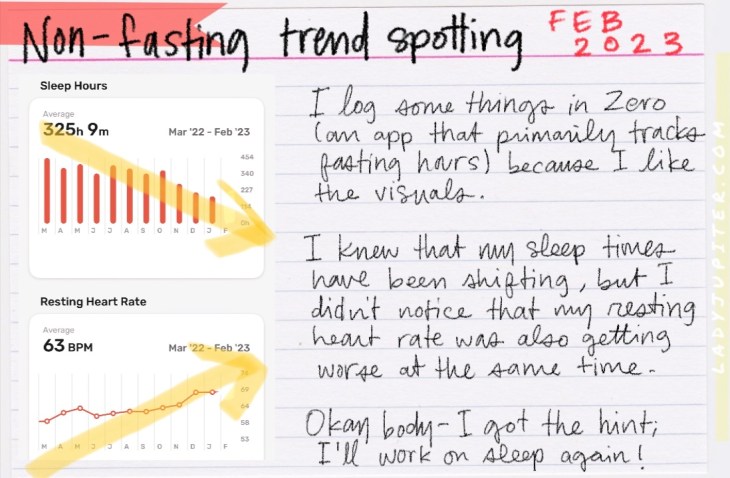 Non-fasting trend spotting
FEB
2023
Sleep Hours
Average
325h 9m
Mar '22 - Feb '23
454
340
227
0h
M A M J J A S O N D J F
Resting Heart Rate
Average
63 BPM
Mar '22 - Feb '23
69
64
58
53
M A M J J A S O N D J F
I log some things in Zero
(an app that primarily tracks
fasting hours) because I like
the visuals.
I knew that my sleep times
have been shifting, but I
didn't notice that my resting
heart rate was also getting
worse at the same time.
Okay body - I got the hint;
I'll work on sleep again!
LADYJUPITER.COM